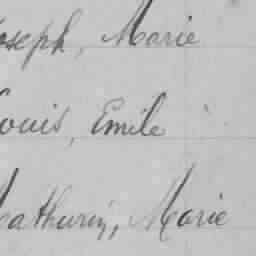 Joseph, Marie
Louis, Emile
Mathurin, Marie